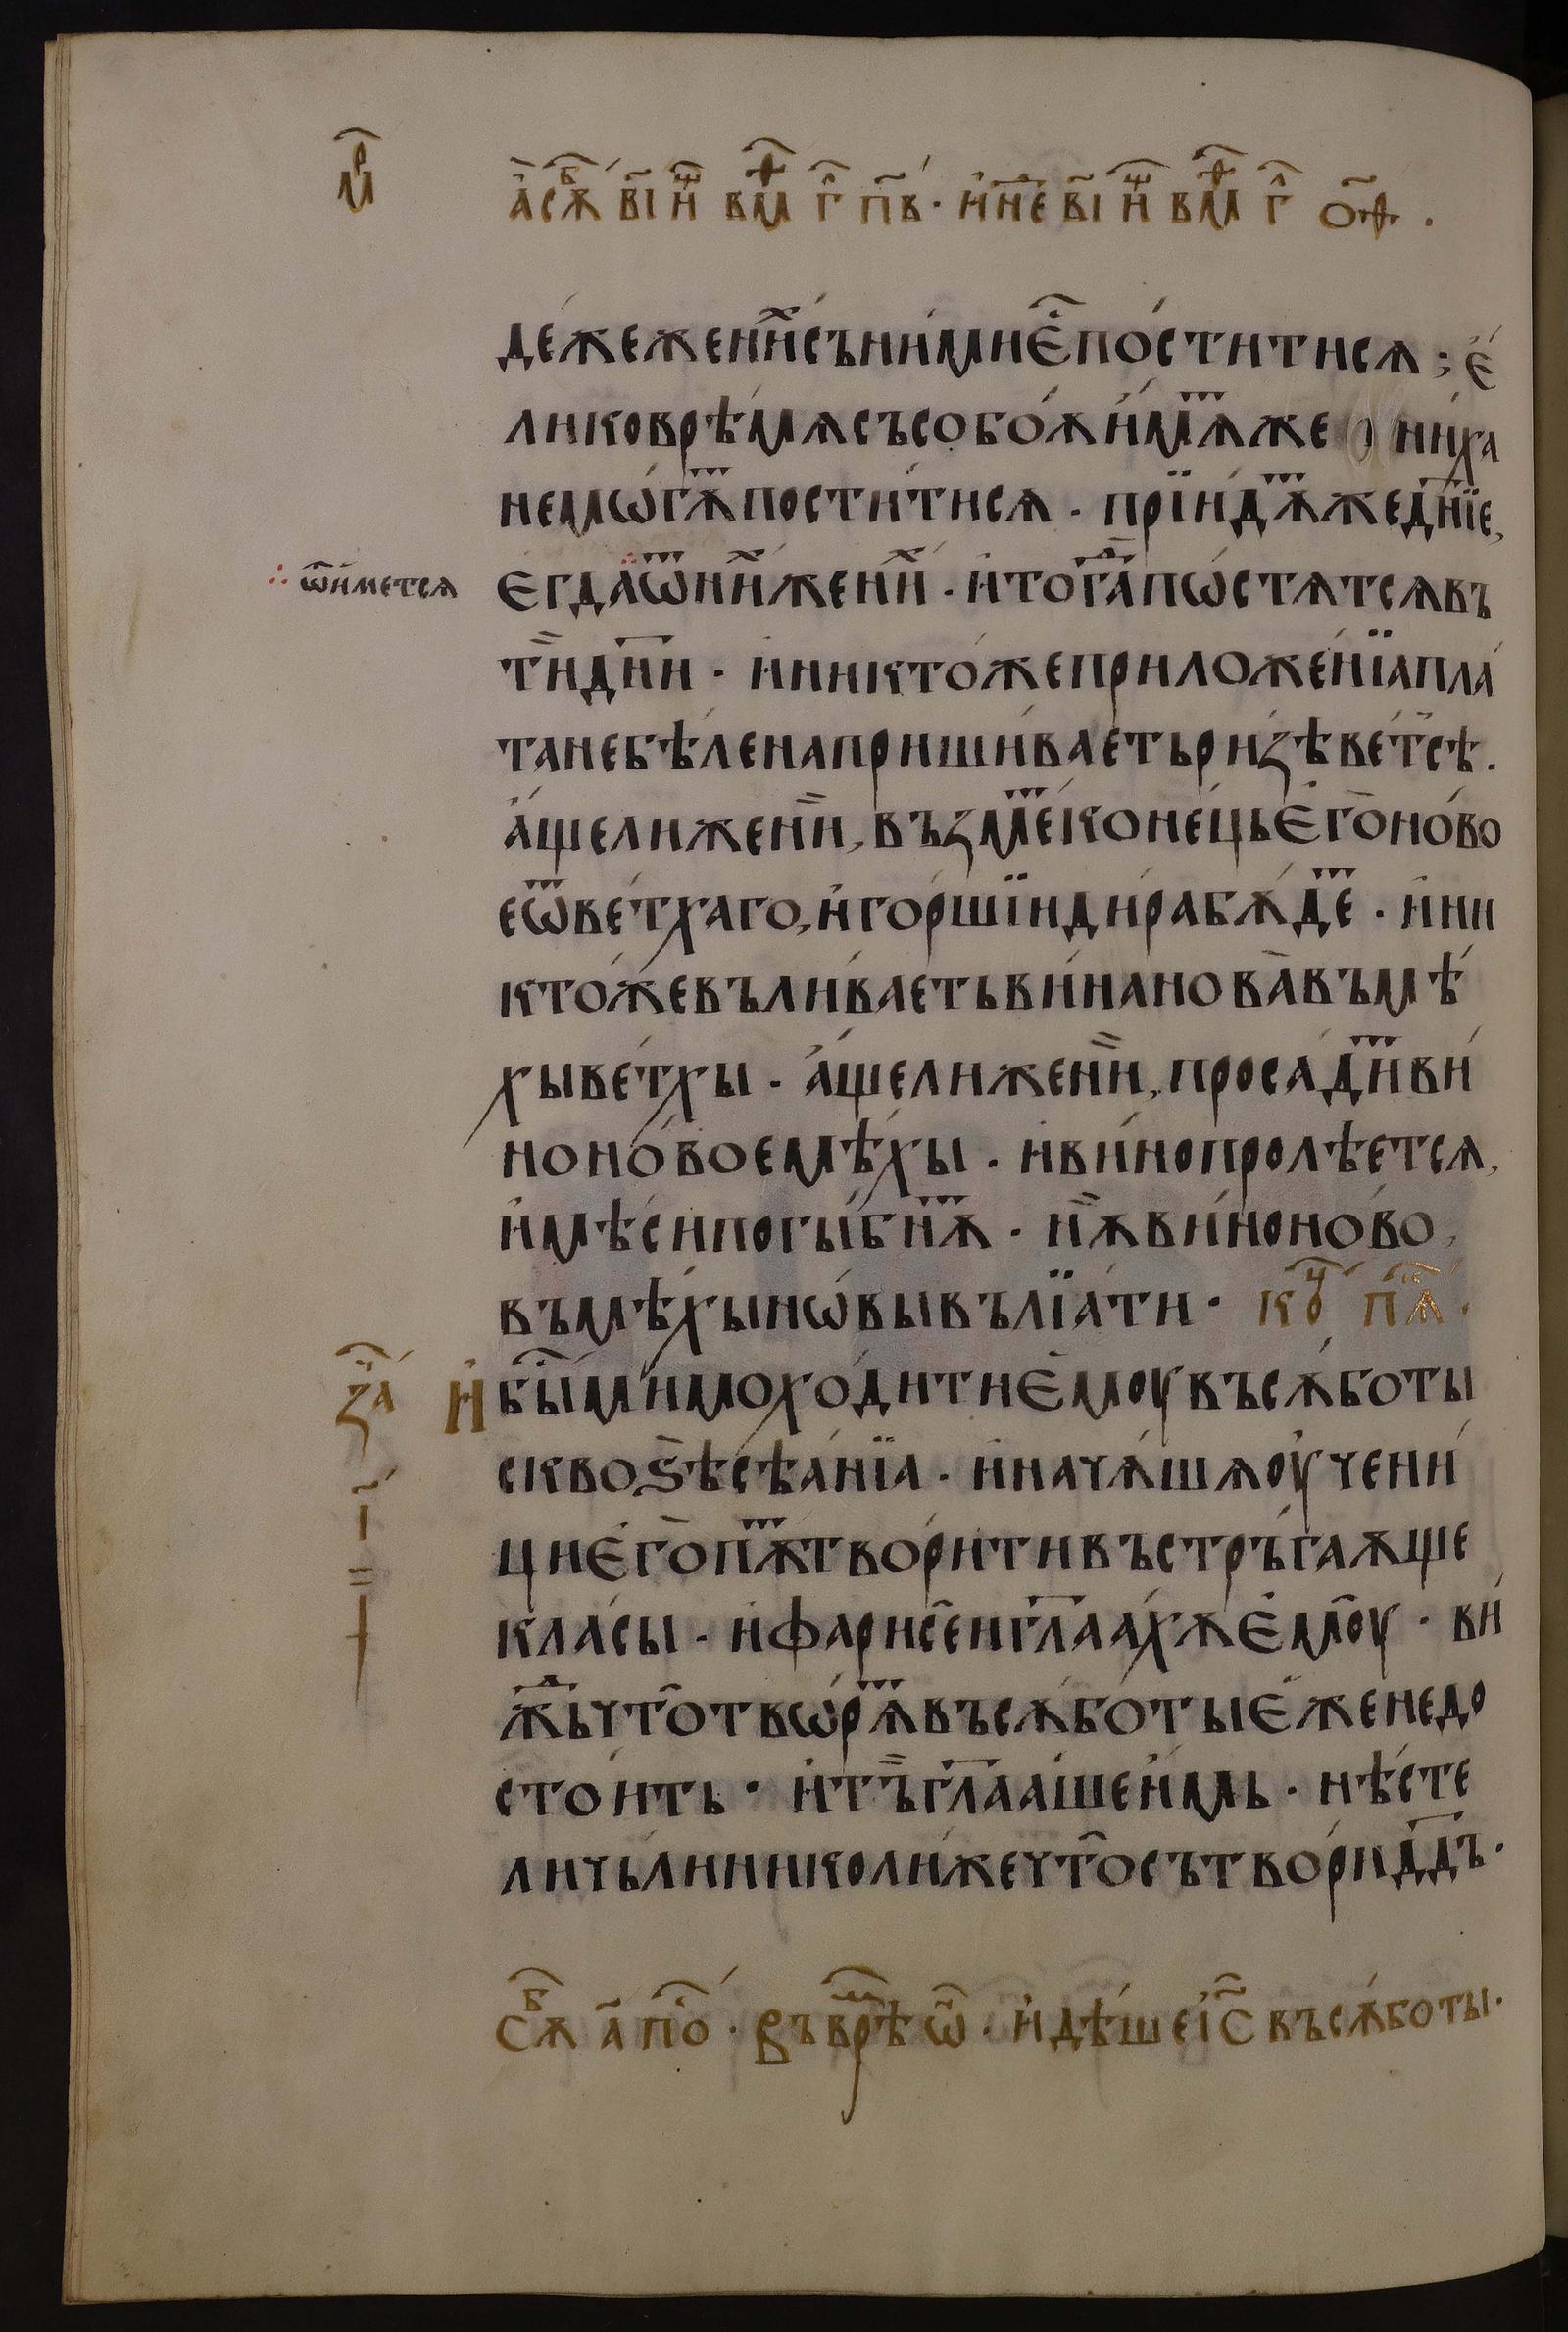 мр҃
а҃ сѫб в҃і и҃ѱ в мѳ г҃л п҃в · и҆ не в҃і и҃ѱ в мѳ г҃л о҃ѳ ·
де́жеже́ни́хсъни́мие҆́по́стити́сѧ; е҆́
ликоврѣ́мѧсъсобо́ѫи҆́мѫтже ни́ха
немѡ́гѫтпости́тисѧ · прїи́дѫтжеднїе,
е҆гда̀ѿни́хжени́х · и҆тога̀дпѡ́стѧтсѧвъ
ѿи҆метсѧ
ти̏дн҃и · и҆никто́жеприложе́нїапла́
танебѣ́ленапришива́етьри́зѣве́тсѣ.
а҆́щелижени̏, въ́зметконе́цье҆го̀но́во
еѿве́тхаго, и҆го́ршїидира̀бѫ́дет · и҆ни
кто́жевълива́етьви́нанова̀въмѣ́
хыве́тхы · а҆́щелижени̏, проса́дитви́
ноно́воемѣ́хы · и҆ви́нопролѣ́етсѧ,
и҆мѣ́сипогы́бнѫт · нѫ̏ви́ноно́во,
въмѣ́хынѡ́вывълїа́ти · коч пѧк ·
за҃ и҆бы́ми́моходи́тие҆моувъсѫ́боты
сквоѕѣ̀сѣ́а́нїа · и҆нача́шѧоу҆чени
і҃
цие҆го̀пѫ́ттвори́тивъстръ́гаѫще
кла́сы · и҆фарисе́игл҃аахѫе҆моу̀ · ви́
ж́дьчто̀твѡ́рѧтвъсѫбо́тые҆́женедо
сто́ить · и҆тъ̏гл҃аашеи҆мь · нѣ́сте
личьлиниколи́жечто̀сътвори́дд҃ъ ·
сѫб а҃ по · въврѣм ѡ҃ · и҆дѣ́шеі҆с҃въсѫ́боты ·